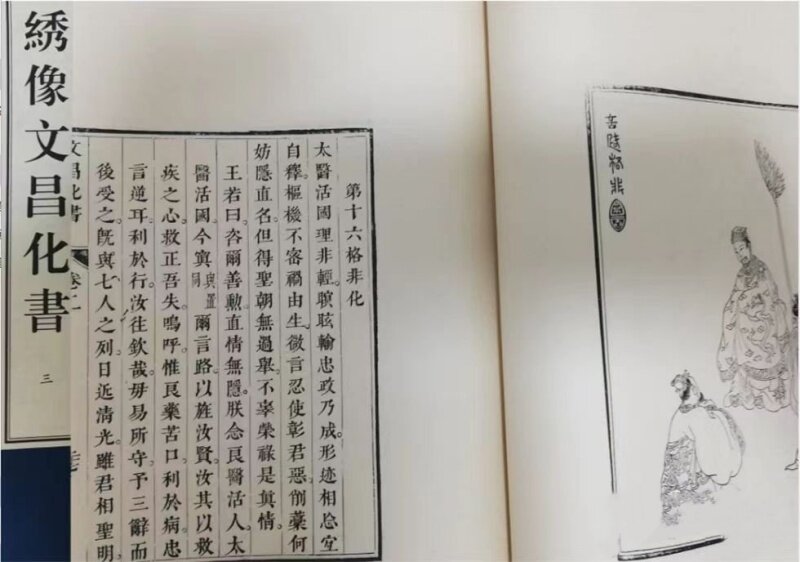 綉像文昌化書
三
第十六格非化
太醫活國理非輕。瞑眩輸忠政乃成。形迹相忘宜
自釋。樞機不審禍由生。微言忍使彰君惡。削藁何
妨隱直名。但得聖朝無過舉。不辜榮祿是眞情。
王若曰。咨爾善勲。直情無隱。朕念良醫活人。太
醫活國。今寘與置同爾言路。以旌汝賢。汝其以救
疾之心。救正吾失。嗚呼。惟良藥苦口。利於病。忠
言逆耳。利於行。汝往欽哉。毋易所守。予三辭而
後受之。旣與七人之列。日近清光。雖君相聖明
文昌化書
卷二
苦陳格非